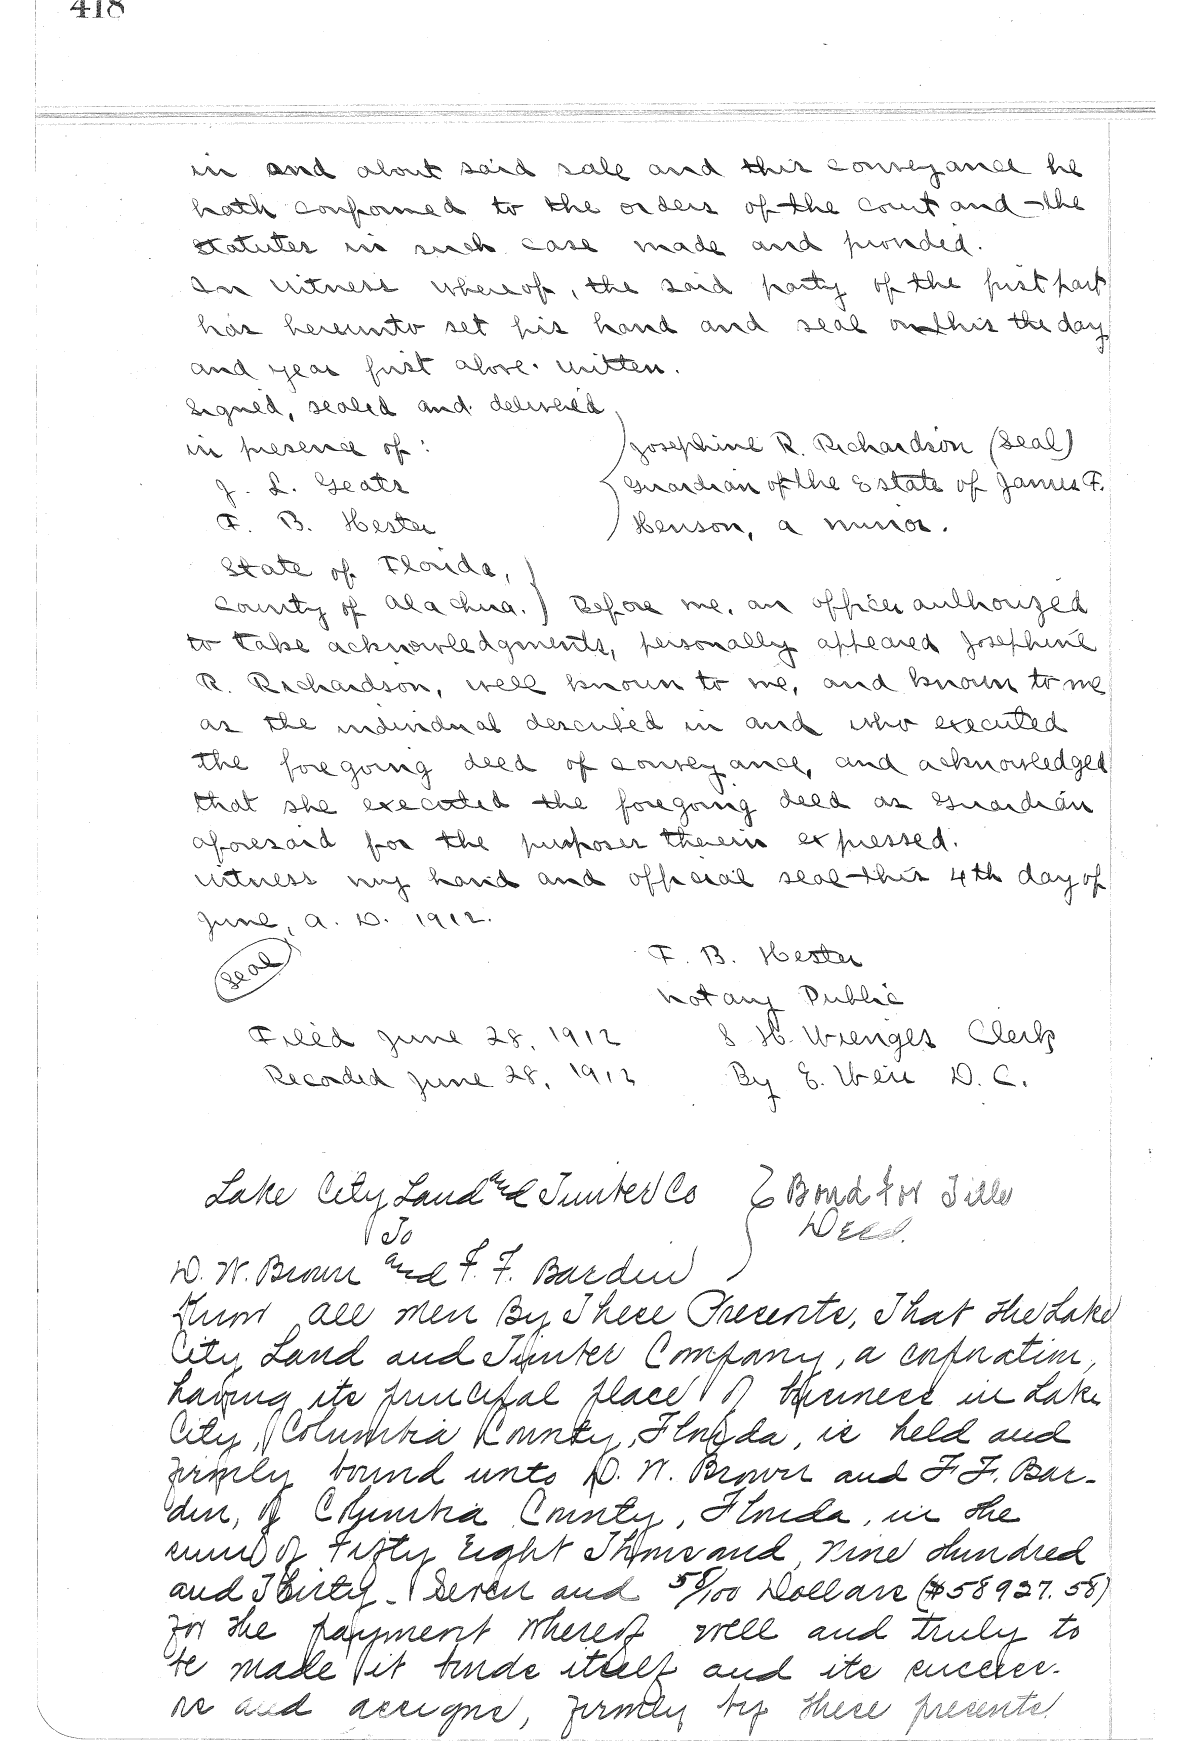 418
in and about said sale and this conveyance he
hath conformed to the orders of the court and the
statutes in such case made and provided.
In witness whereof, the said party of the first part
has hereunto set his hand and seal on this the day
and year first above written.
Signed, sealed and delivered
in presence of:
Josephine R. Richardson (Seal)
J. L. Geats
Guardian of the Estate of James F.
F. B. Hester
Henson, a minor.
State of Florida,
County of Alachua. Before me, an officer authorized
to take acknowledgments, personally appeared Josephine
R. Richardson, well known to me, and known to me
as the individual described in and who executed
the foregoing deed of conveyance, and acknowledged
that she executed the foregoing deed as Guardian
aforesaid for the purposes therein expressed.
Witness my hand and official seal this 4th day of
June, A. D. 1912.
Seal
F. B. Hester
Notary Public
Filed June 28, 1912 S H. Wienges Clerk
Recorded June 28, 1912 By E. Weir D. C.
Lake City Land and Timber Co Bond for Title
To Deed.
D. W. Brown and F. F. Barden
Know all men By These Presents, That the Lake
City Land and Timber Company, a corporation,
having its principal place of business in Lake
City, Columbia County, Florida, is held and
firmly bound unto D. W. Brown and F. F. Bar-
den, of Columbia County, Florida, in the
sum of Fifty Eight Thousand, Nine Hundred
and Thirty-Seven and 58/100 Dollars ($58927.58)
for the payment whereof well and truly to
be made it binds itself and its success-
ors and assigns, firmly by these presents